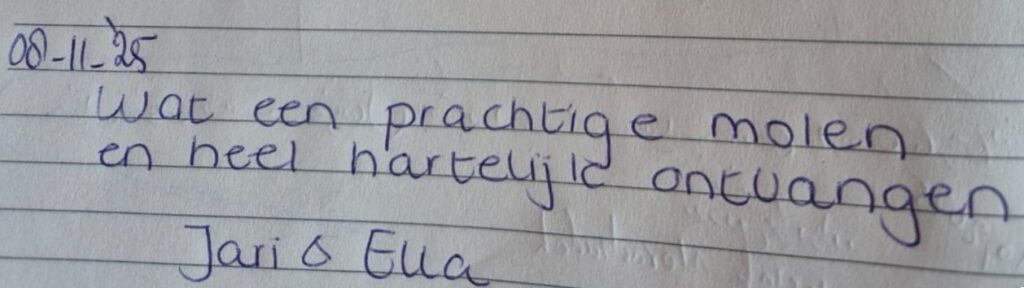 08-11-'25
Wat een prachtige molen
en heel hartelijk ontvangen
Jari & Ella